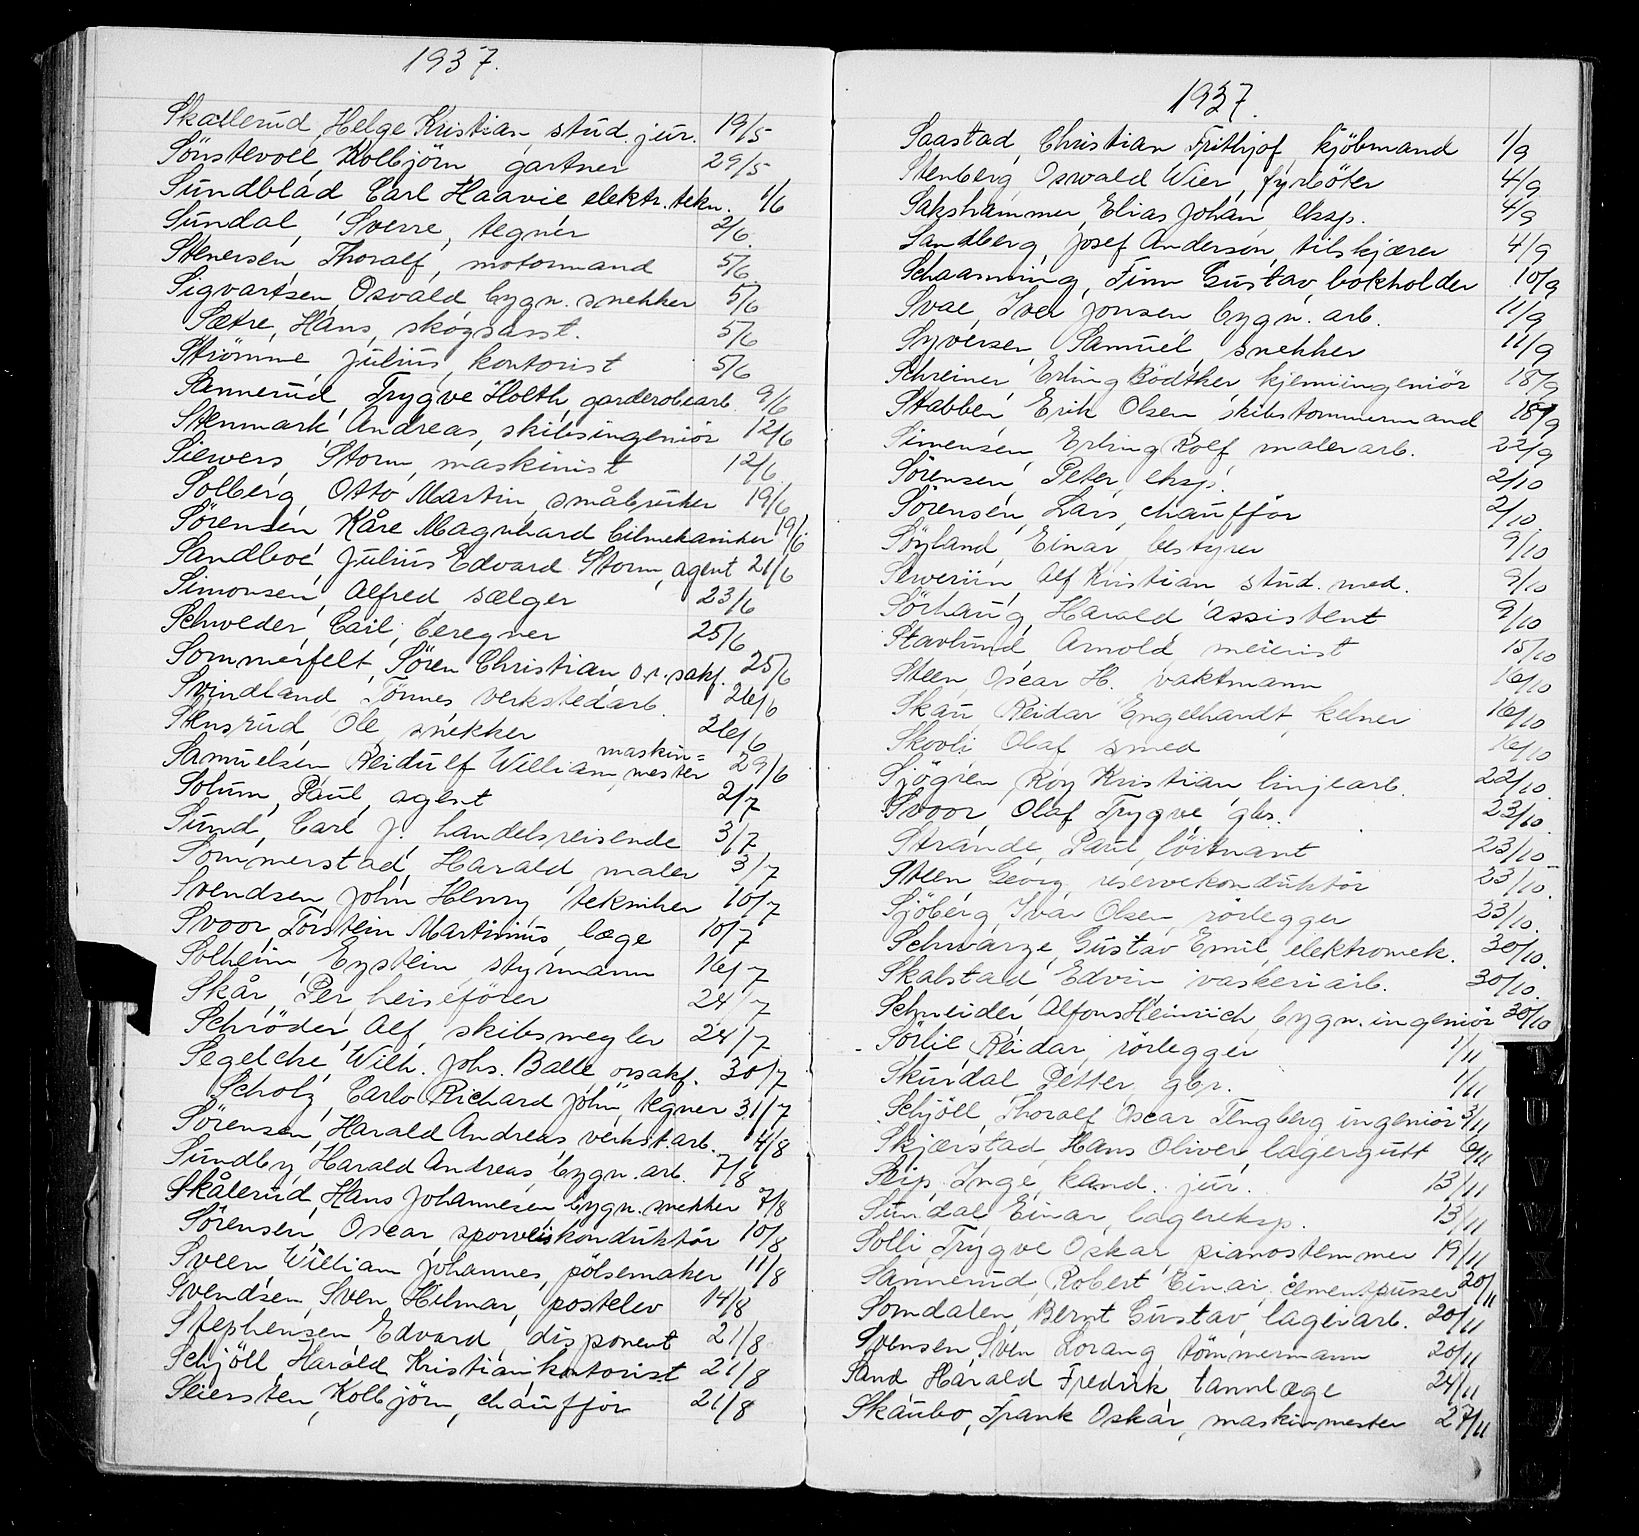 1937.
Skallerud, Helge Kristian, stud. jur. 19/5
Sönstevoll, Kolbjörn gartner 29/5
Sundblad Carl Haavie elektr. tekn. 1/6
Sundal, Sverre, tegner 2/6
Stenersen, Thoralf, motormand 5/6
Sigvartsen, Osvald bygn. snekker 5/6
Sætre, Hans, skogsasst. 5/6
Strömme, Julius, kontorist 5/6
Sannerud, Trygve Holth garderobearb. 9/6
Stenmark Andreas, skibsingeniör 12/6
Siewers, Storm, maskinist 12/6
Solberg, Otto Martin, småbruker 19/6
Sörensen Kåre Magnhard bilmekaniker 19/6
Sandboe, Julius Edvard Storm, agent 21/6
Simonsen, Alfred sælger 23/6
Schweder, Cail, beregner 25/6
Sommerfelt, Sören Christian o.r. sakf. 25/6
Svindland, Tönnes verkstedarb. 26/6
Stensrud, Ole, snekker 26/6
Samuelsen Reidulf William, maskin=mester 29/6
Solum, Paul, agent 2/7
Sund, Carl J. handelsreisende 3/7
Sommerstad, Harald, maler 3/7
Svendsen, John Henry tekniker 10/7
Svoor, Torstein Martinius, læge 10/7
Solheim, Eystein, styrmann 16/7
Skår, Per, heiseförer 24/7
Schröder, Alf, skibsmegler 24/7
Segelcke, Wilh. Johs. Balle orsakf. 30/7
Scholz, Carlo Richard John, tegner 31/7
Sörensen, Harald Andreas verkst.arb. 4/8
Sundby, Harald Andreas, bygn. arb. 7/8
Skålerud, Hans Johannesen bygn. snekker 7/8
Sörensen, Oscar, sporveiskonduktör 10/8
Sveen William Johannes, pölsemaker 11/8
Svendsen, Sven Hilmar, postelev 14/8
Stephensen Edvard, disponent 21/8
Schjöll, Harald Kristian kontorist 21/8
Seiersten, Kolbjörn, chaufför 21/8
1937.
Saastad, Christian Frithjof, kjöbmand 1/9
Stenberg, Oswald Wier, fyrböter 4/9
Sakshammer, Elias Johan, eksp. 4/9
Sandberg, Josef Anderson, tilskjærer 4/9
Schaanning, Finn Gustav, bokholder 10/9
Svae, Iver Jonsen bygn. arb. 11/9
Syversen, Samuel, snekker 11/9
Schreiner, Erling Bödtker kjemiingeniör 18/9
Stabben, Erik Olsen, skibstömmermand 18/9
Simensen, Erling Rolf malerarb. 22/9
Sörensen, Peter, eksp. 2/10
Sörensen, Lars, chaufför 2/10
Söyland, Einar, bestyrer 9/10
Seweriin, Alf Kristian, stud. med. 9/10
Sörhaug, Harald assistent 9/10
Stavlund, Arnold, meierist 15/10
Steen, Oscar H. vaktmann 16/10
Skau, Reidar Engelhardt, kelner 16/10
Skovli, Olaf smed 16/10
Sjögren, Roy Kristian linjearb. 22/10.
Svoor, Olaf Trygve gbr. 23/10.
Strande, Paul, löitnant 23/10
Steen, Georg, reservekonduktör 23/10.
Sjöberg, Ivar Olsen, rörlegger 23/10.
Schwarze, Gustav Emil, elektromek. 30/10.
Skalstad, Edvin, vaskeriarb. 30/10.
Schneider, Alfons Heinrich, bygn. ingeniör 30/10
Sörlie, Reidar, rörlegger 1/11
Skurdal, Petter, gbr. 1/11
Schjöll, Thoralf Oscar Tengberg ingeniör 3/11
Skjærstad, Hans Oliver, lagergutt 6/11
Seip, Inge, kand. jur. 13/11
Sundal, Einar, lagereksp. 13/11
Solli, Trygve Oskar, pianostemmer 19/11
Sannerud, Robert Einar, cementpusser 20/11
Somdalen, Bernt Gustav, lagerarb. 20/11
Svensen, Sven Lorang, tömmermann 20/11
Sand, Harald Fredrik tannlæge 24/11
Skaubo, Frank Oskar, maskinmester 27/11
T
U
V
W
X
Y
Z